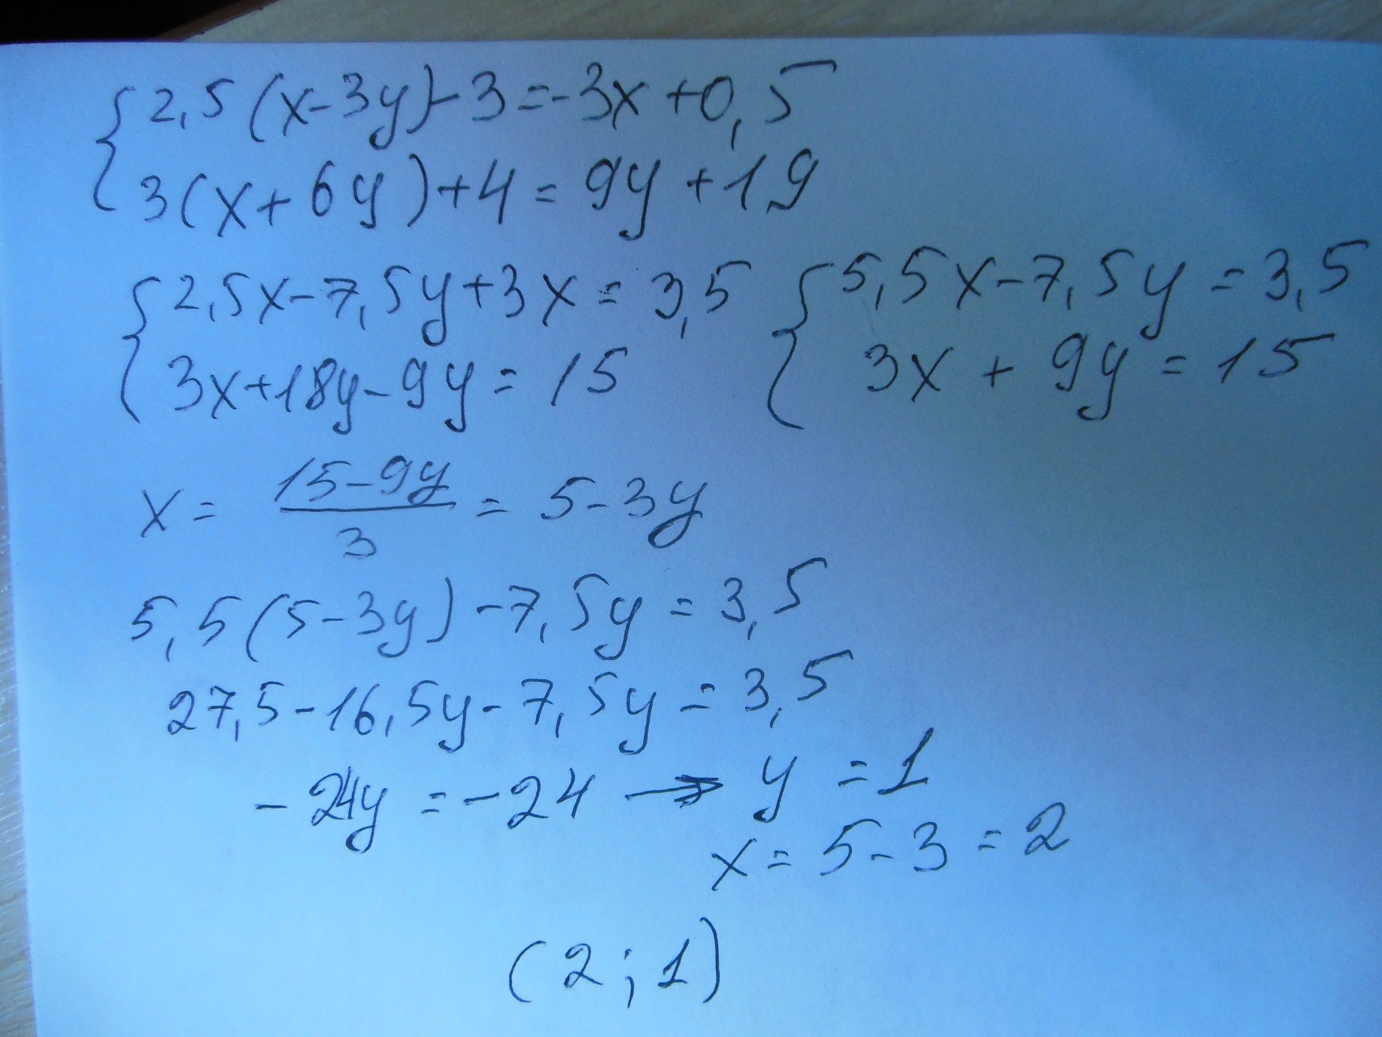 {2,5(x-3y)-3=-3x+0,5
3(x+6y)+4=9y+19
{2,5x-7,5y+3x=3,5 {5,5x-7,5y=3,5
3x+18y-9y=15 3x+9y=15
x=\frac{15-9y}{3}=5-3y
5,5(5-3y)-7,5y=3,5
27,5-16,5y-7,5y=3,5
-24y=-24 → y=1
x=5-3=2
(2;1)